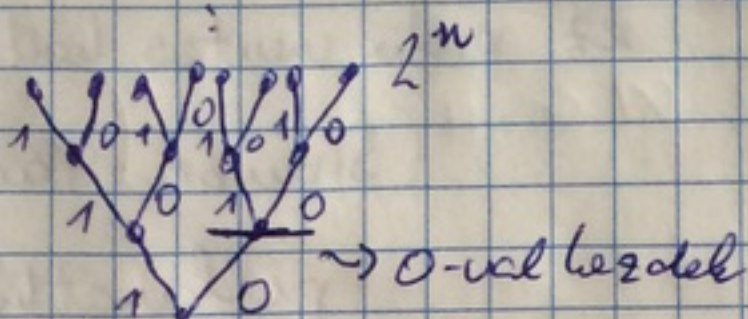 ⋮
2ⁿ
1 0 1 0 1 0 1 0
1 0 1 0
→ 0-val kezdek
1 0